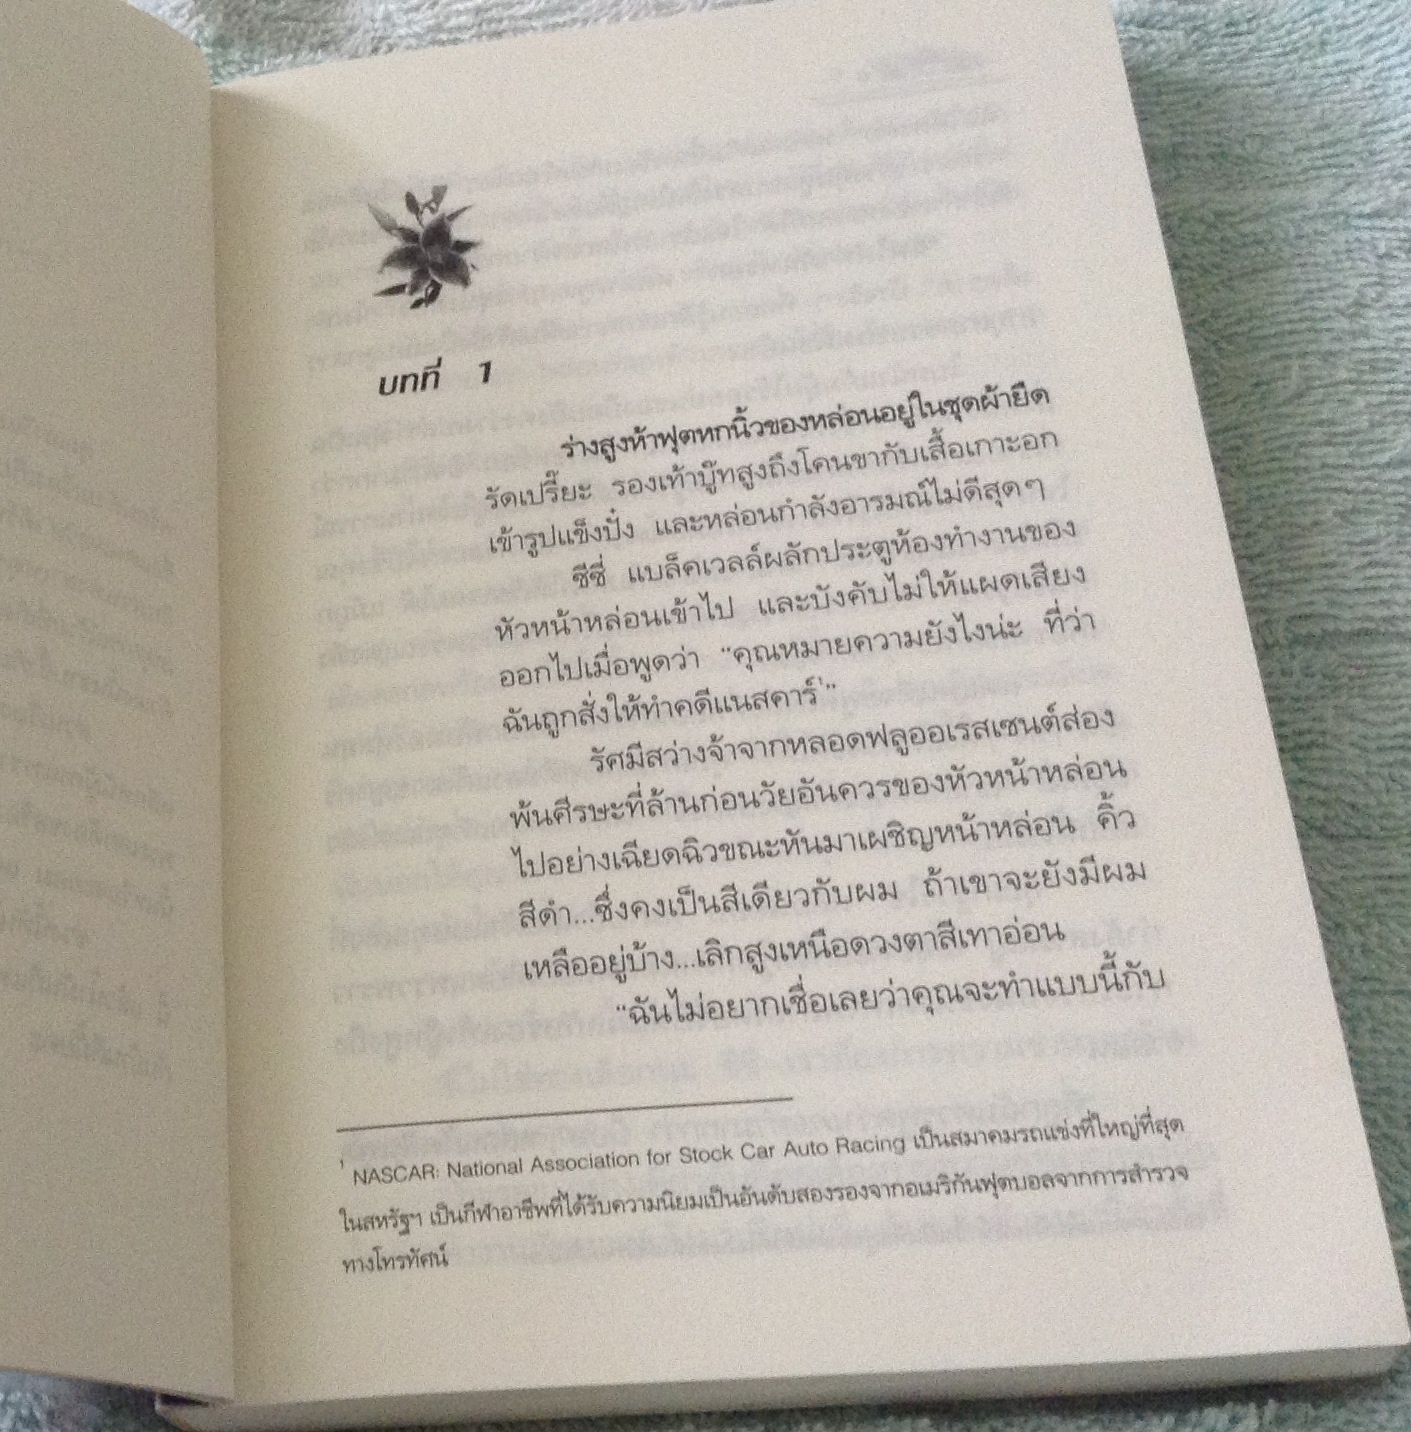 บทที่ 1
ร่างสูงห้าฟุตหกนิ้วของหล่อนอยู่ในชุดผ้ายืด
รัดเปรี๊ยะ รองเท้าบู๊ทสูงถึงโคนขากับเสื้อเกาะอก
เข้ารูปแข็งปั๋ง และหล่อนกำลังอารมณ์ไม่ดีสุดๆ
ซีซี่ แบล็คเวลล์ผลักประตูห้องทำงานของ
หัวหน้าหล่อนเข้าไป และบังคับไม่ให้แผดเสียง
ออกไปเมื่อพูดว่า “คุณหมายความยังไงน่ะ ที่ว่า
ฉันถูกสั่งให้ทำคดีแนสคาร์¹”
รัศมีสว่างจ้าจากหลอดฟลูออเรสเซนต์ส่อง
พ้นศีรษะที่ล้านก่อนวัยอันควรของหัวหน้าหล่อน
ไปอย่างเฉียดฉิวขณะหันมาเผชิญหน้าหล่อน คิ้ว
สีดำ...ซึ่งคงเป็นสีเดียวกับผม ถ้าเขาจะยังมีผม
เหลืออยู่บ้าง...เลิกสูงเหนือดวงตาสีเทาอ่อน
“ฉันไม่อยากเชื่อเลยว่าคุณจะทำแบบนี้กับ
¹ NASCAR: National Association for Stock Car Auto Racing เป็นสมาคมรถแข่งที่ใหญ่ที่สุด
ในสหรัฐฯ เป็นกีฬาอาชีพที่ได้รับความนิยมเป็นอันดับสองรองจากอเมริกันฟุตบอลจากการสำรวจ
ทางโทรทัศน์